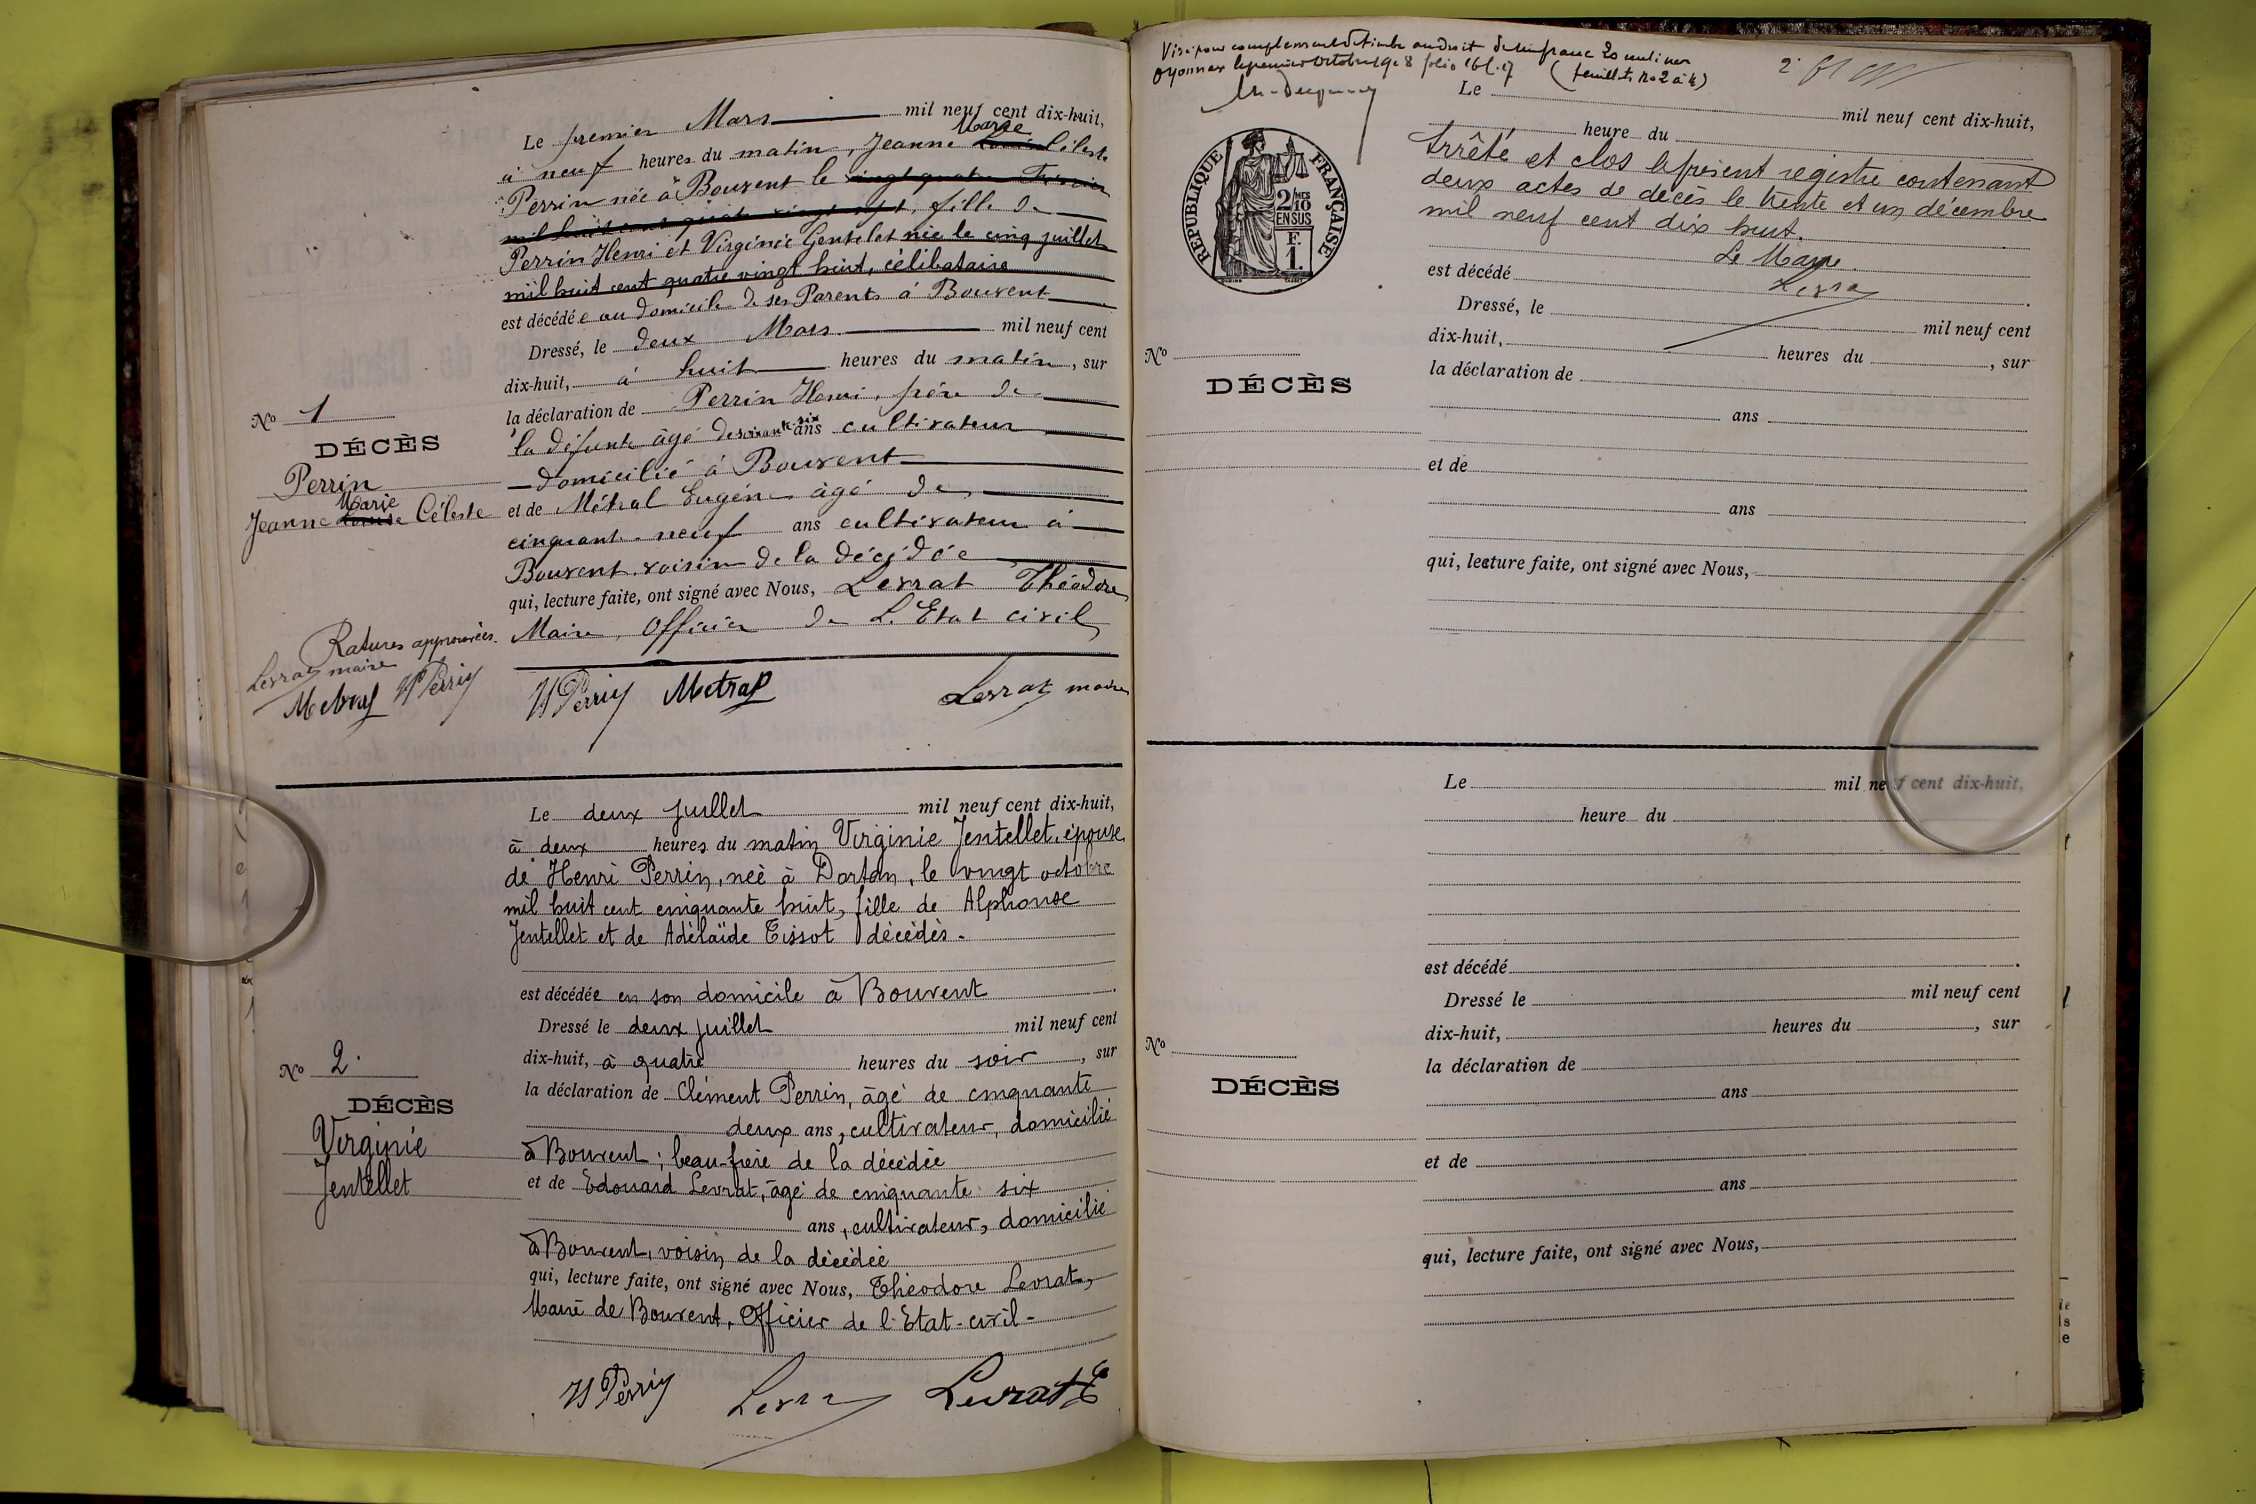 Le premier Mars mil neuf cent dix-huit,
à neuf heures du matin, Jeanne Marie Louise Céleste
Perrin née à Bouvent le vingt quatre Février
mil huit cent quatre vingt sept, fille de
Perrin Henri et Virginie Gentelet née le cinq juillet
mil huit cent quatre vingt huit, célibataire
est décédée au domicile de ses Parents à Bouvent
Dressé, le deux Mars mil neuf cent
dix-huit, à huit heures du matin, sur
la déclaration de Perrin Henri, père de
la défunte âgé de soixante-six ans cultivateur
domicilié à Bouvent
et de Métral Eugène âgé de
cinquante-neuf ans cultivateur à
Bouvent, voisin de la décédée
qui, lecture faite, ont signé avec Nous, Levrat Théodore
Maire, Officier de L'Etat civil
H Perrin Metral Levrat maire
No 1
DÉCÈS
Perrin
Jeanne Marie Louise Céleste
Ratures approuvées
Levrat maire
Metral H Perrin
Le deux juillet mil neuf cent dix-huit,
à deux heures du matin Virginie Jentellet, épouse
de Henri Perrin, neè à Dortan, le vingt octobre
mil huit cent cinquante huit, fille de Alphonse
Jentellet et de Adèlaïde Tissot décèdès.
est décédée en son domicile à Bouvent
Dressé le deux juillet mil neuf cent
dix-huit, à quatre heures du soir, sur
la déclaration de Clèment Perrin, âgè de cinquante
deux ans, cultivateur, domicilié
à Bouvent; beau-frère de la dècèdèe
et de Edouard Levrat, âgè de cinquante six
ans, cultivateur, domicilié
à Bouvent, voisin de la dècèdèe
qui, lecture faite, ont signé avec Nous, Thèodore Levrat,
Maire de Bouvent, Officier de l'Etat-civil-
H Perrin Levrat Levrat E
No 2.
DÉCÈS
Virginie
Jentellet
Visé pour complément de timbre au droit de un franc 20 centimes
Oyonnax le premier Octobre 1918 folio (feuillets No 2 à 4)
Le mil neuf cent dix-huit,
heure du
Arrêté et clos le présent registre contenant
deux actes de décès le trente et un décembre
mil neuf cent dix huit.
Le Maire.
Levrat
RÉPUBLIQUE FRANÇAISE
2/10 MES
EN SUS
F.
1.
est décédé
Dressé, le mil neuf cent
dix-huit, heures du , sur
la déclaration de
ans
et de
ans
qui, lecture faite, ont signé avec Nous,
No
DÉCÈS
Le mil neuf cent dix-huit,
heure du
est décédé
Dressé le mil neuf cent
dix-huit, heures du , sur
la déclaration de
ans
et de
ans
qui, lecture faite, ont signé avec Nous,
No
DÉCÈS